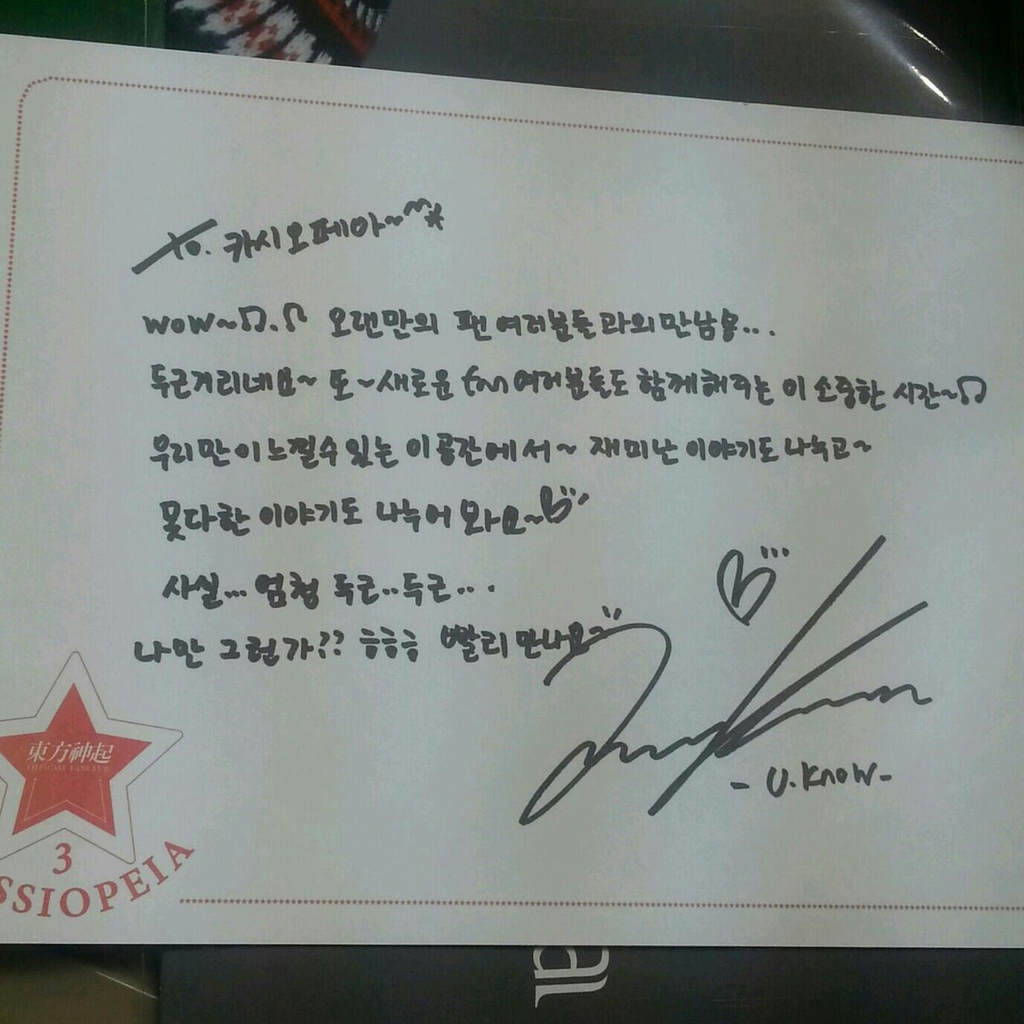 To. 카시오페아~^^*
WOW~♫.♪ 오랜만의 팬 여러분들과의 만남용...
두근거리네요~ 또~새로운 fan여러분들도 함께해주는 이 소중한 시간~♫
우리만이 느낄수 있는 이 공간에서~ 재미난 이야기도 나누고~
못다한 이야기도 나누어 봐요~♡
사실... 엄청 두근..두근...
나만 그런가?? 흠흠흠 빨리 만나요~
- U.Know -
東方神起
OFFICIAL FANCLUB
3
SSIOPEIA
al